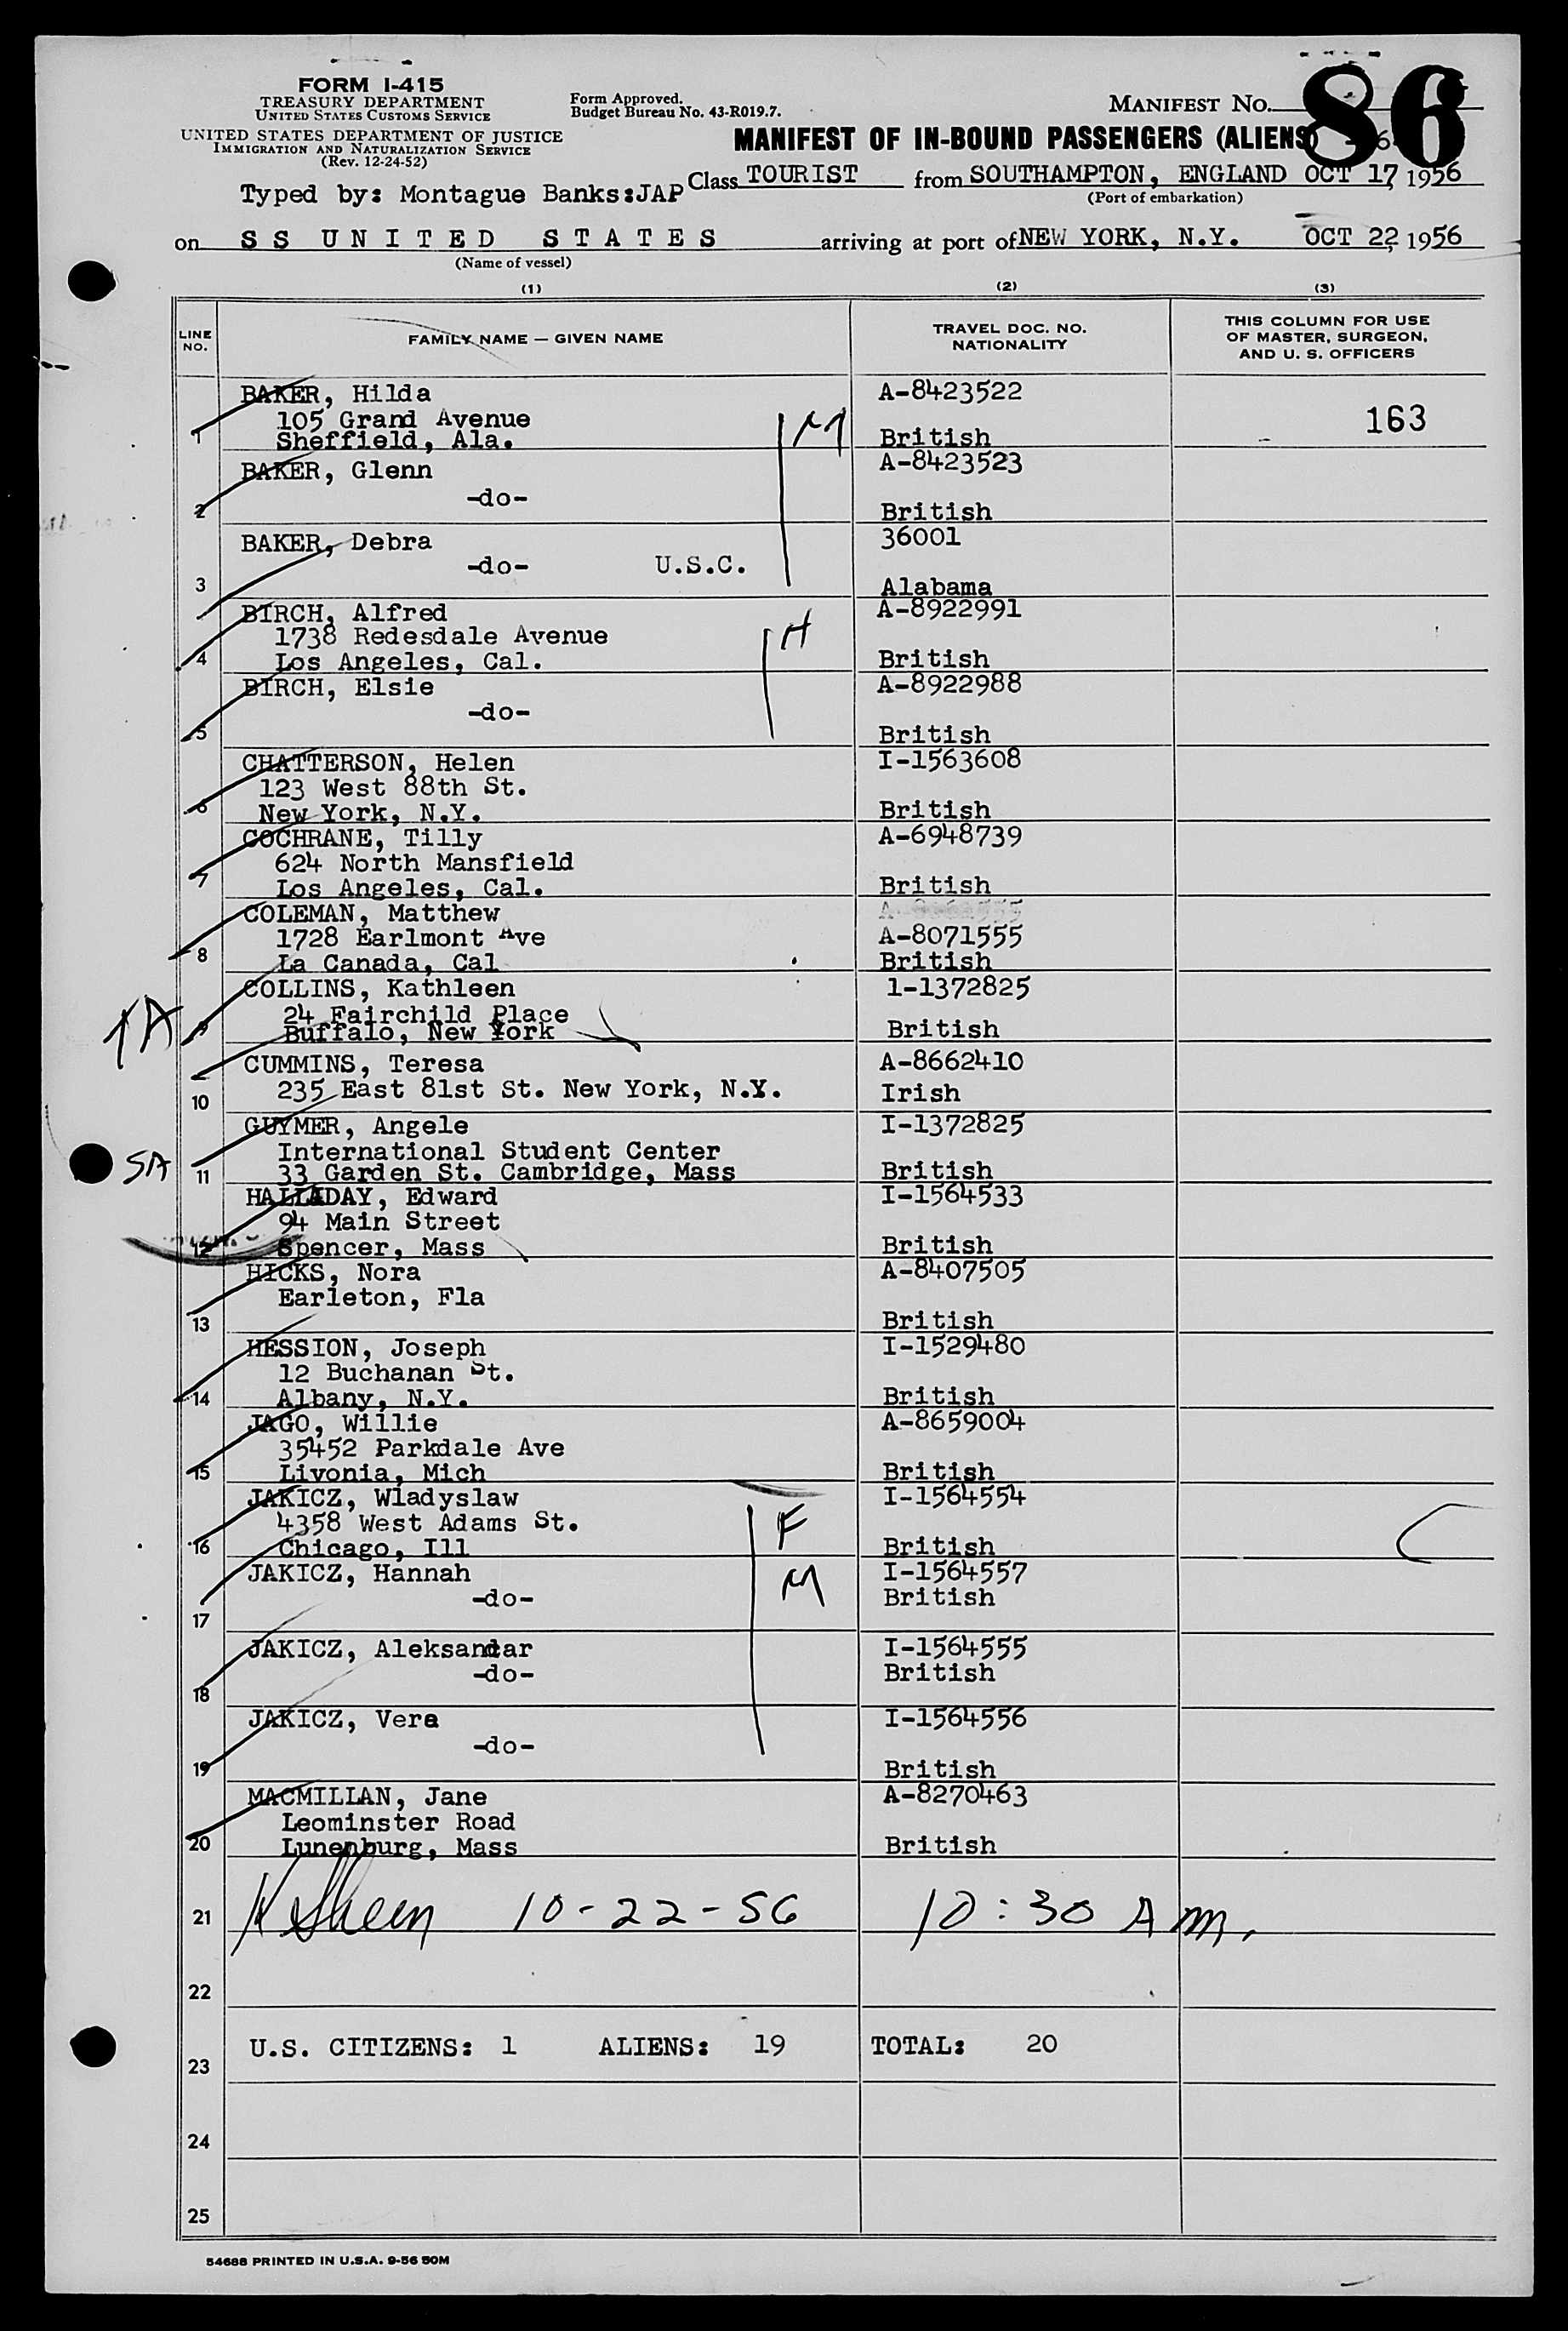 FORM I-415
TREASURY DEPARTMENT
UNITED STATES CUSTOMS SERVICE
UNITED STATES DEPARTMENT OF JUSTICE
IMMIGRATION AND NATURALIZATION SERVICE
(Rev. 12-24-52)
Form Approved.
Budget Bureau No. 43-R019.7.
MANIFEST NO. 86
MANIFEST OF IN-BOUND PASSENGERS (ALIENS)
Typed by: Montague Banks:JAP
Class TOURIST from SOUTHAMPTON, ENGLAND OCT 17, 1956
(Port of embarkation)
on SS UNITED STATES arriving at port of NEW YORK, N.Y. OCT 22, 1956
(Name of vessel)
(1) (2) (3)
LINE NO.
FAMILY NAME — GIVEN NAME
TRAVEL DOC. NO.
NATIONALITY
THIS COLUMN FOR USE
OF MASTER, SURGEON,
AND U. S. OFFICERS
BAKER, Hilda A-8423522
105 Grand Avenue M 163
1 Sheffield, Ala. British
BAKER, Glenn A-8423523
-do-
2 British
BAKER, Debra 36001
-do- U.S.C.
3 Alabama
BIRCH, Alfred A-8922991
1738 Redesdale Avenue H
4 Los Angeles, Cal. British
BIRCH, Elsie A-8922988
-do-
5 British
CHATTERSON, Helen I-1563608
123 West 88th St.
6 New York, N.Y. British
COCHRANE, Tilly A-6948739
624 North Mansfield
7 Los Angeles, Cal. British
COLEMAN, Matthew
1728 Earlmont Ave A-8071555
8 La Canada, Cal British
COLLINS, Kathleen 1-1372825
24 Fairchild Place
1A 9 Buffalo, New York British
CUMMINS, Teresa A-8662410
10 235 East 81st St. New York, N.Y. Irish
GUYMER, Angele I-1372825
International Student Center
SA 11 33 Garden St. Cambridge, Mass British
HALLADAY, Edward I-1564533
94 Main Street
12 Spencer, Mass British
HICKS, Nora A-8407505
Earleton, Fla
13 British
HESSION, Joseph I-1529480
12 Buchanan St.
14 Albany, N.Y. British
JAGO, Willie A-8659004
35452 Parkdale Ave
15 Livonia, Mich British
JAKICZ, Wladyslaw I-1564554
4358 West Adams St. F
16 Chicago, Ill British
JAKICZ, Hannah I-1564557
-do- M British
17
JAKICZ, Aleksandar I-1564555
-do- British
18
JAKICZ, Vera I-1564556
-do-
19 British
MACMILLAN, Jane A-8270463
Leominster Road
20 Lunenburg, Mass British
21 K Sheen 10-22-56 10:30 Am.
22
23 U.S. CITIZENS: 1 ALIENS: 19 TOTAL: 20
24
25
54688 PRINTED IN U.S.A. 9-56 50M